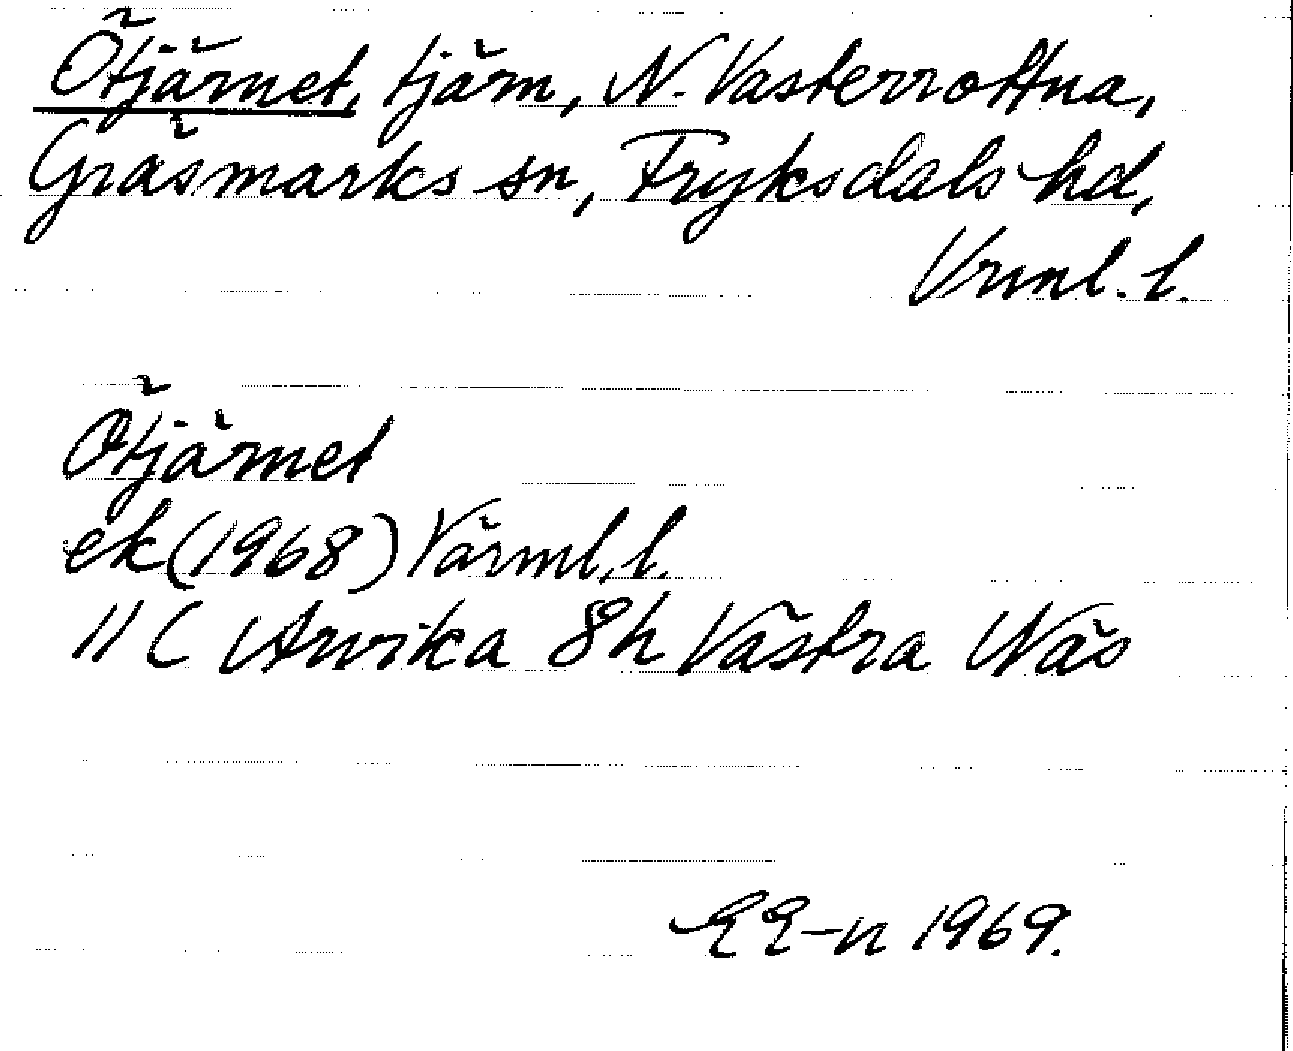 Ötjärnet, tjärn, N. Västerrottna,
Gräsmarks sn, Fryksdals hd,
Vrml. l.
Ötjärnet
ek (1968) Värml. l.
11 C Arvika 8h Västra Näs
EE-n 1969.